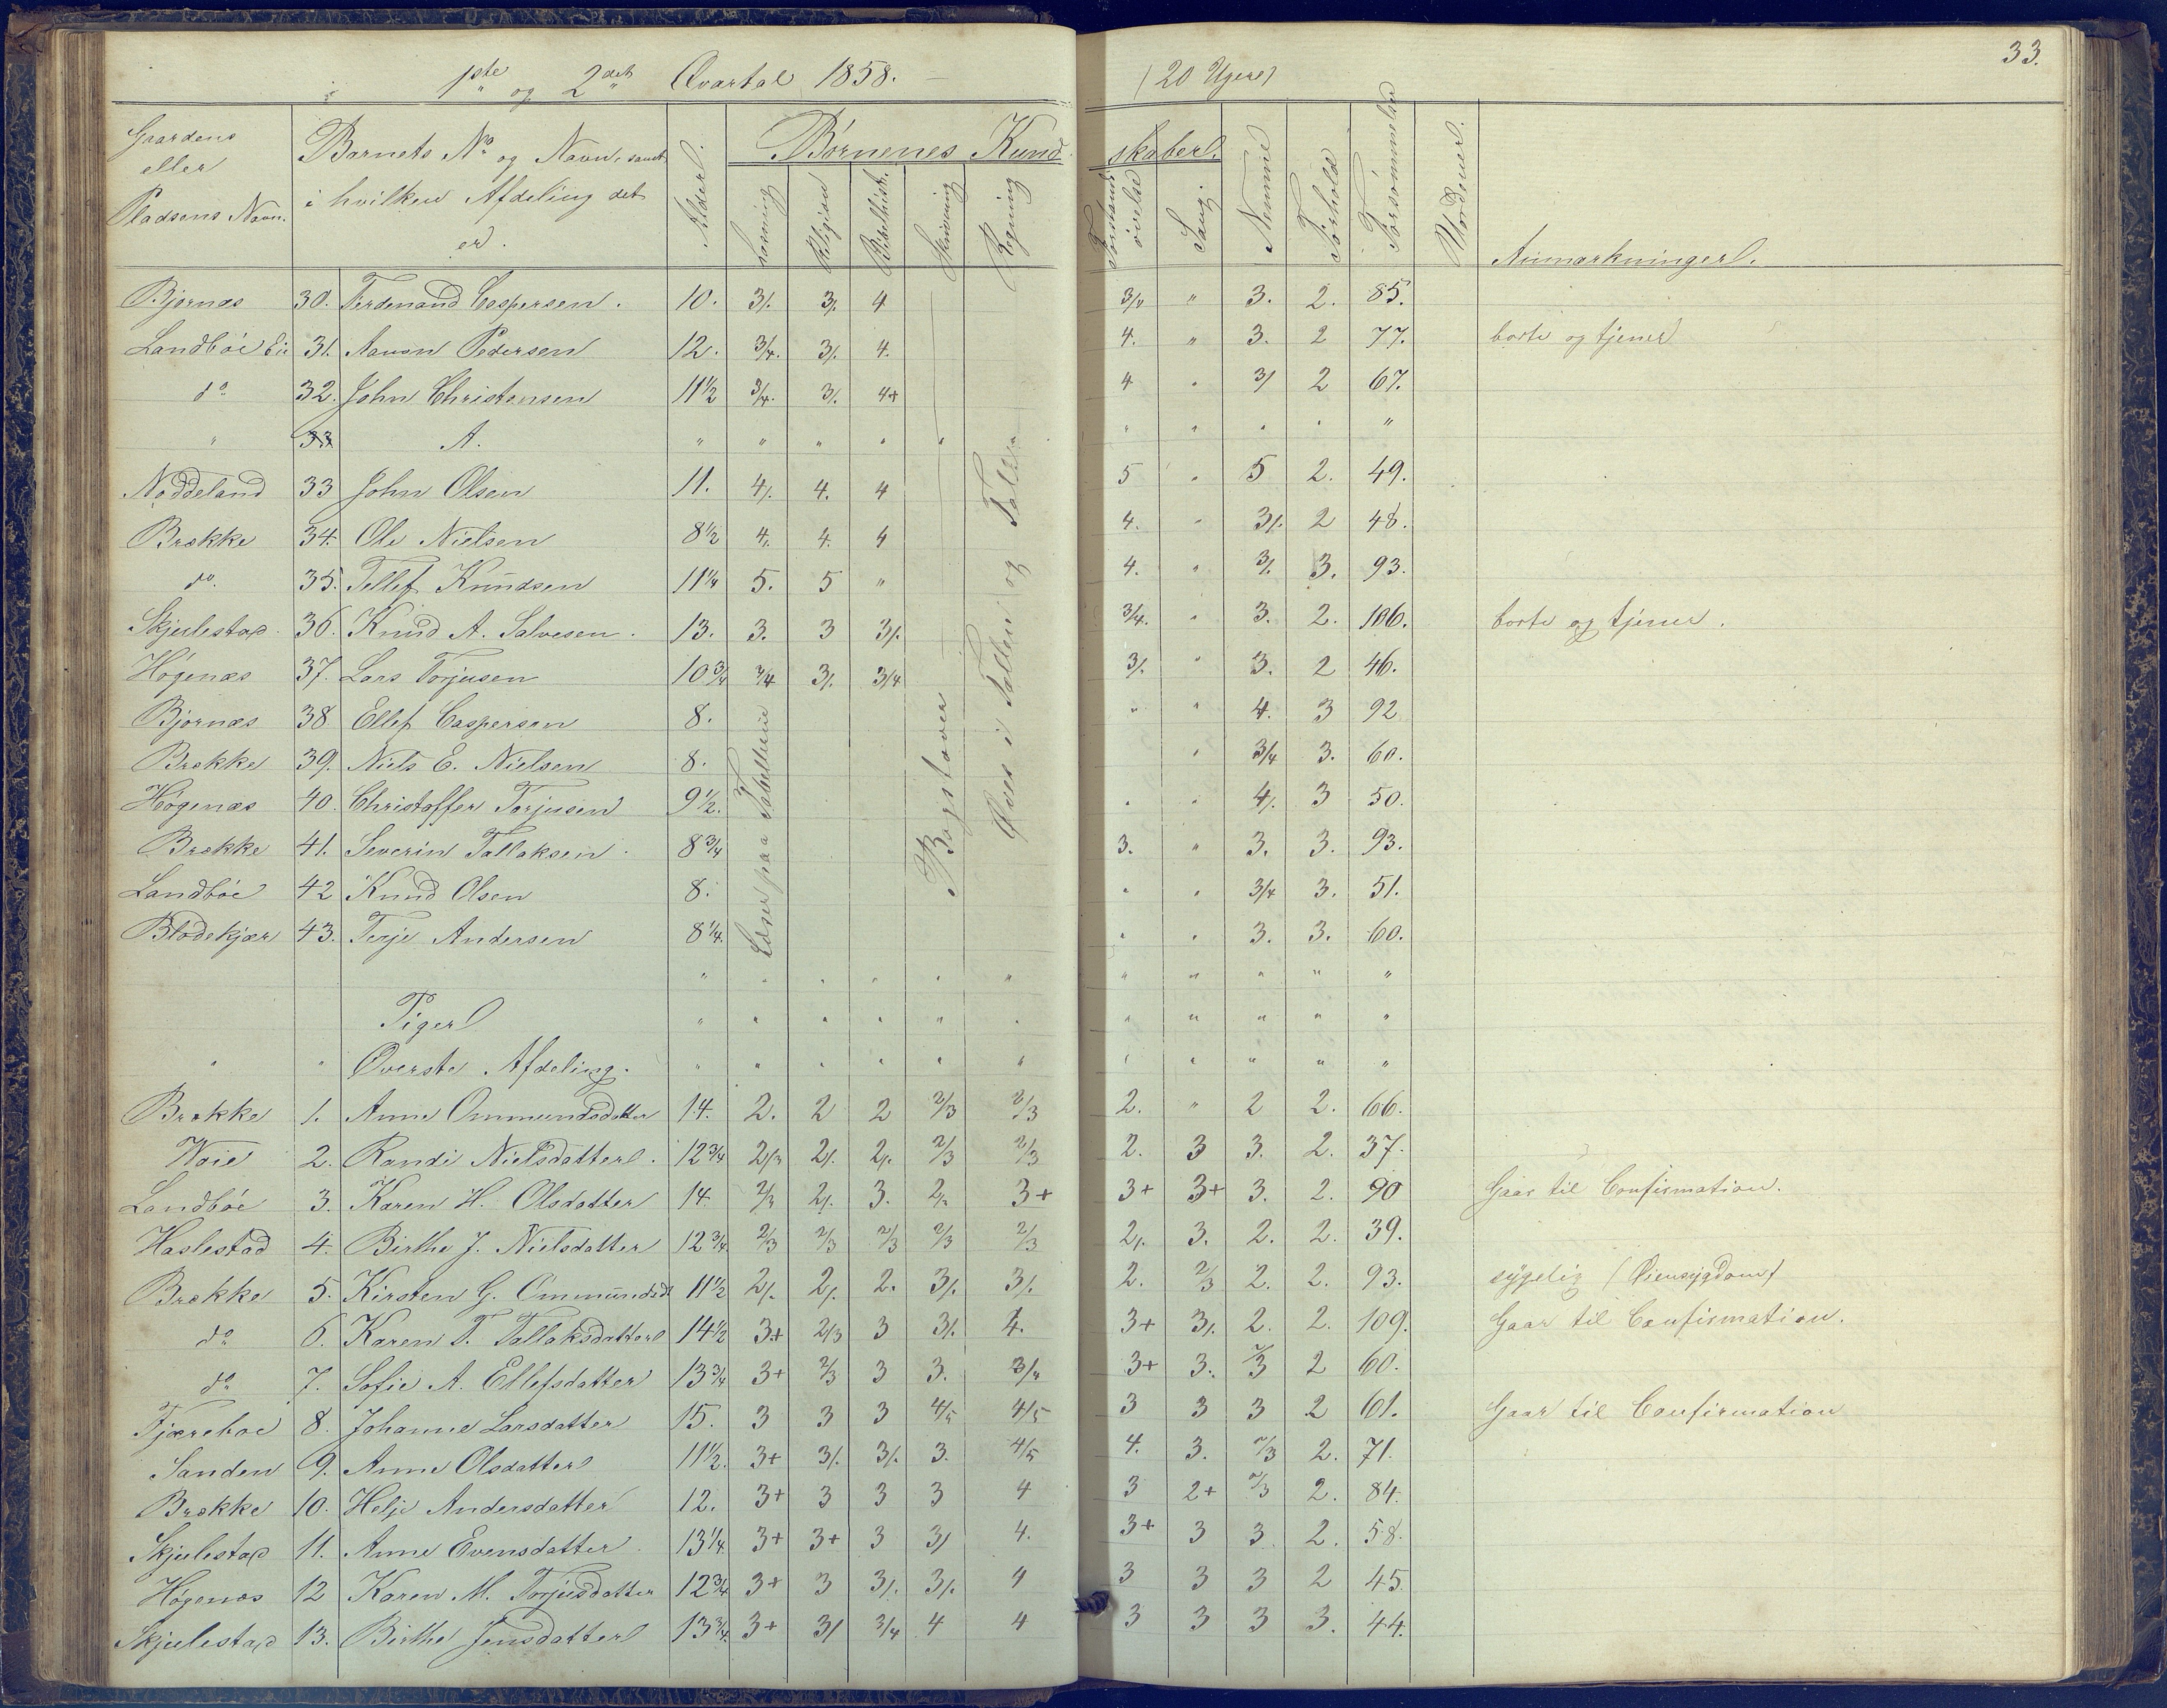 33.
1ste og 2det Qvartal 1858. (20 Uger)
Gaardens eller Pladsens Navn. | Barnets No og Navn, samt i hvilken Afdeling det er. | Alder. | Børnenes Kundskaber. | Nemme | Forhold | Forsømmelser | Anmærkninger.
Læsning | Religion | Bibelhist. | Skrivning | Regning | Forstands øvelse | Sang.
Bjornæs 30. Ferdenand Caspersen. 10. 3/. 3/. 4 3/4 " 3. 2. 85.
Landböe Eie 31. Aanon Pedersen 12. 3/4. 3/. 4. 4. " 3. 2 77. borte og tjener
do 32. John Christensen 11 1/2 3/4. 3/. 4+ 4 " 3/ 2 67.
" 33 A. " " " " " " " " " "
Noddeland 33 John Olsen 11. 4/. 4. 4 5 " 5 2. 49.
Brække 34. Ole Nielsen 8 1/2 4/. 4. 4 4. " 3/. 2 48.
do. 35. Tellef Knudsen 11 1/4 5. 5 " 4. " 3/. 3. 93.
Skjulestad 36. Knud A. Salvesen. 13. 3. 3 3/. 3/4. " 3. 2. 106. borte og tjener.
Högenæs 37. Lars Torjusen 10 3/4 3/4 3/. 3/4 3/. " 3. 2 46.
Bjornæs 38 Ellef Caspersen 8. " " 4. 3 92
Brække 39. Niels E. Nielsen 8. " 3/4 3. 60.
Högenæs 40. Christoffer Torjusen 9 1/2. " " 4/. 3 50.
Brække 41. Severin Tallaksen 8 3/4 3. " 3. 3. 93.
Landböe 42 Knud Olsen 8. " " 3/4 3. 51.
Blödekjær 43. Terje Andersen 8 1/4. " " 3. 3. 60.
Læser paa Tabellerne
Bogstaver
Øves i Tallene og Tallen
Piger
Øverste Afdeling.
Brække 1. Anne Ommundsdatter 14. 2. 2 2 2/3 2/3 2. " 2 2. 66.
Woie 2. Randi Nielsdatter. 12 3/4 2/3 2/. 2/. 2/3 2/3 2. 3 3. 2. 37.
Landböe 3. Karen H. Olsdatter 14. 2/3 2/. 3. 2/. 3+ 3+ 3+ 3. 2. 90 Gaar til Confirmation.
Haslestad 4. Birthe J. Nielsdatter 12 3/4. 2/3 2/3 2/3 2/3 2/3 2/. 3. 2. 2. 39.
Brække 5. Kirsten G. Ommundsdt 11 1/2 2/. 2/. 2. 3/. 3/. 2. 2/3 2. 2. 93. sygelig (Øiensygdom)
do 6. Karen T. Tallaksdatter 14 1/2 3+ 2/3 3 3/. 4. 3+ 3/. 2. 2. 109. Gaar til Confirmation.
do 7. Sofie A. Ellefsdatter 13 3/4 3+ 2/3 3 3. 3/4 3+ 3. 2/3 2 60.
Fjæreboe 8. Johanne Larsdatter 15. 3 3 3 4/5 4/5 3 3 3 2 61. Gaar til Confirmation
Sanden 9. Anne Olsdatter 11 1/2. 3+ 3/. 3/. 3. 4/5 4. 3. 2/3 2. 71.
Brække 10. Helje Andersdatter 12. 3+ 3 3 3 4 3 2+ 2/3 2. 84.
Skjulestad 11. Anne Evensdatter 13 1/4. 3+ 3+ 3 3/ 4. 3+ 3 3 2. 58.
Högenæs 12 Karen M. Torjusdatter 12 3/4 3+ 3 3/. 3/. 4 3 3 3 2 45.
Skjulestad 13. Birthe Jensdatter 13 3/4. 3+ 3/ 3/4 4 4 3 3 3 3. 44.